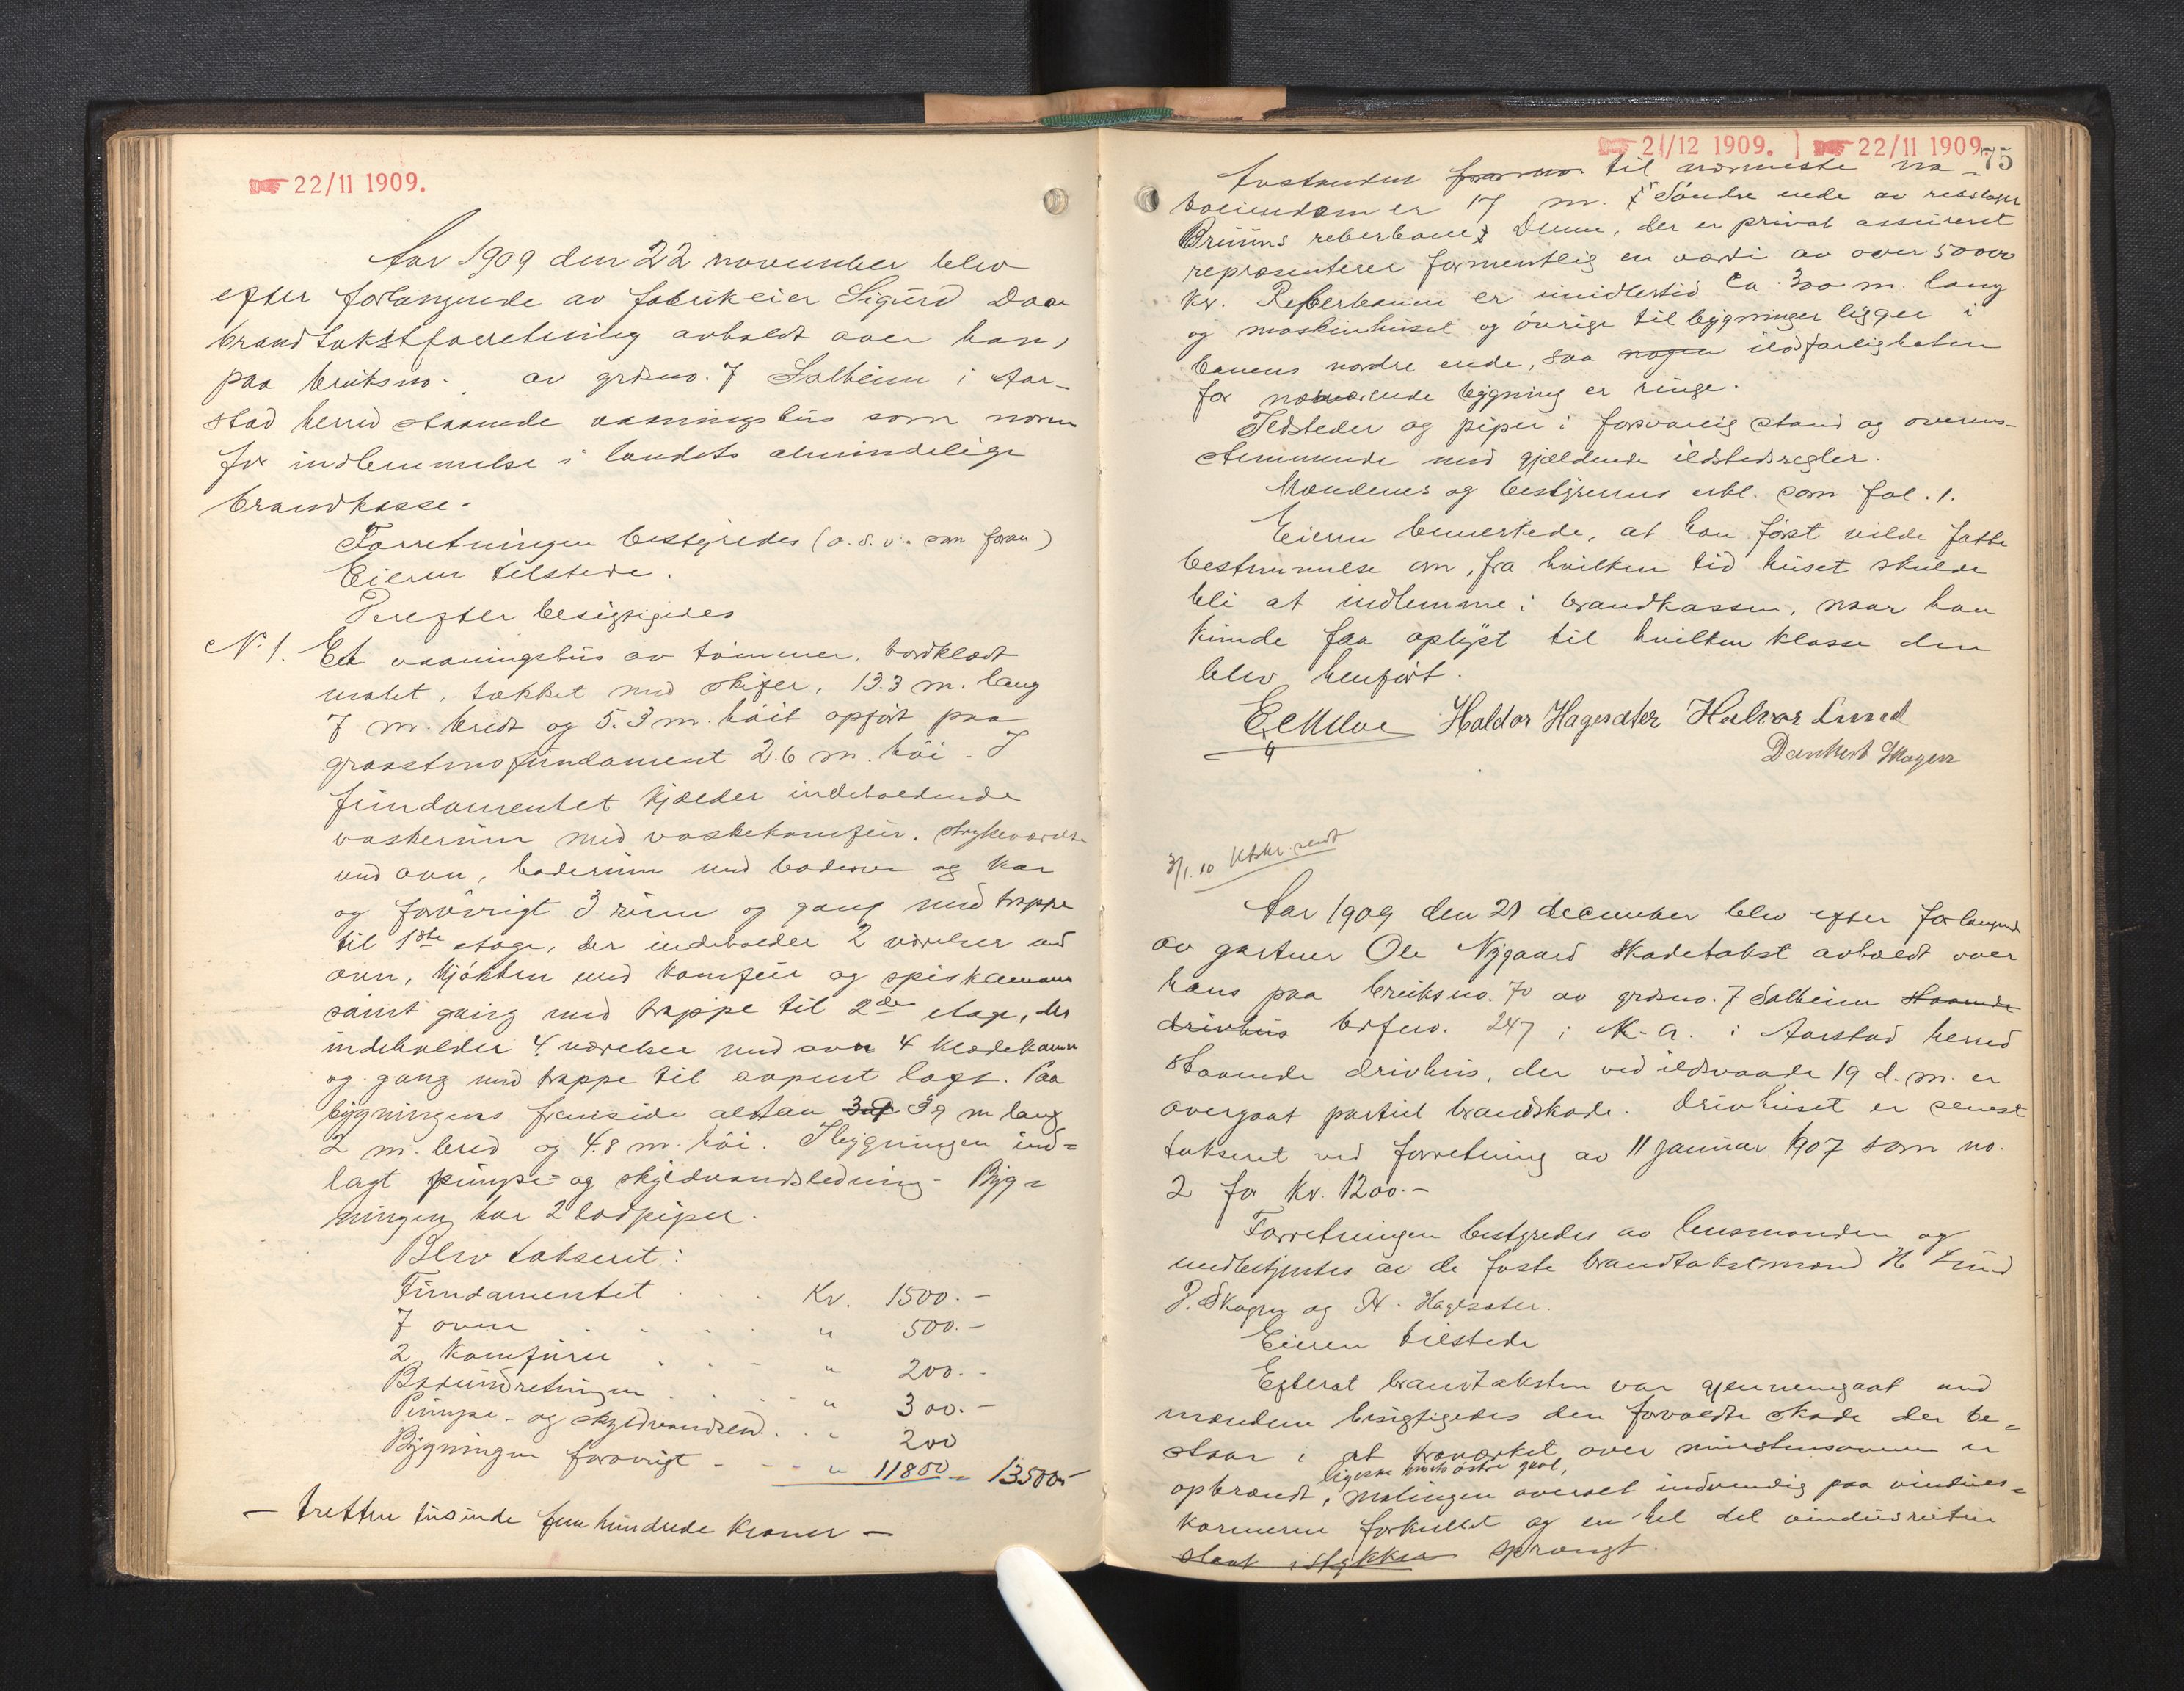 22/11 1909.
Aar 1909 den 22 november blev
efter forlangende av fabrikeier Sigurd Daae
brandtakstforretning avholdt over hans
paa bruksno. av grdsno. 7 Solheim i Aar-
stad herred staaende vaaningshus som noren
for indlemmelse i landets almindelige
brandkasse.
Forretningen bestyredes (o.s.v. som foran)
Eieren tilstede.
Derefter besigtigedes
No. 1. Et vaaningshus av tømmer, bordklædt
malet, tækket med skifer, 13.3 m. lang
7 m. bredt og 5.3 m. høit opført paa
graastensfundament 2.6 m. høi. I
fundamentet kjelder indeholdende
vaskerum med vaskekomfur, strykeværelse
med ovn, baderum med badeovn og kar
og forøvrigt 3 rum og gang med trappe
til 1ste etage, der indeholder 2 værelser med
ovn, kjøkken med komfur og spiskammer
samt gang med trappe til 2den etage, der
indeholder 4 værelser med ovn 4 klædekamre
og gang med trappe til aapent loft. Paa
bygningens framside altan 3.9 3.9 m lang
2 m. bred og 4.8 m. høi. I bygningen ind=
lagt pumpe- og skyldvandsledning. Byg=
ningen har 2 lodpiper.
Blev takseret:
Fundamentet . . . Kr. 1500.-
7 ovne . . . . " 500.-
2 komfurer . . . " 200.-
Badeindretningen . . . " 300.-
Pumpe- og skyldvandsled. . " 200
Bygningen forøvrigt - - - " 11800 = 13500.-
- tretten tusinde fem hundrede kroner -
21/12 1909. 22/11 1909. 75
Avstanden fra til nærmeste na-
boeiendom er 17 m. Søndre ende av rebslager
Bruuns reberbane. Denne, der er privat assureret
repræsenterer formentlig en værdi av over 50000
kr. Reberbanen er imidlertid ca. 300 m. lang
og maskinhuset og øvrige tilbygninger ligger i
banens nordre ende, saa nogen ildsfarligheten
for nærværende bygning er ringe.
Ildsteder og piper i forsvarlig stand og overens-
stemmende med gjældende ildstedsregler.
Mændenes og bestyrerens erkl. som fol. 1.
Eieren bemerkede, at han først vilde fatte
bestemmelse om, fra hvilken tid huset skulde
bli at indlemme i brandkassen, naar han
kunde faa oplyst til hvilken klasse den
blev henført.
Haldor Hagesæter Halvor Lund
Dankert Skagen
3/1. 10 Utskr. sendt
Aar 1909 den 21 december blev efter forlangende
av gartner Ole Nygaard skadetakst avholdt over
hans paa bruksno. 70 av grdsno. 7 Solheim staaende
drivhus brfno. 247 i M.A. i Aarstad herred
staaende drivhus, der ved ildsvaade 19 d.m. er
overgaat partiel brandskade. Drivhuset er senest
takseret ved forretning av 11 januar 1907 som no.
2 for kr. 1200.-
Forretningen bestyredes av lensmanden og
medbetjentes av de faste brandtakstmænd H. Lund
D. Skagen og H. Hagesæter.
Eieren tilstede
Efterat brandtaksten var gjennemgaat med
mændene besigtigedes den forvoldte skade der be=
staar i at træverket over murstensovnen er
ligesaa husets østre gavl,
opbrændt, malingen overalt indvendig paa vindues=
karmerne forkullet og en hel del vinduesruter
slaat istykker sprængt.